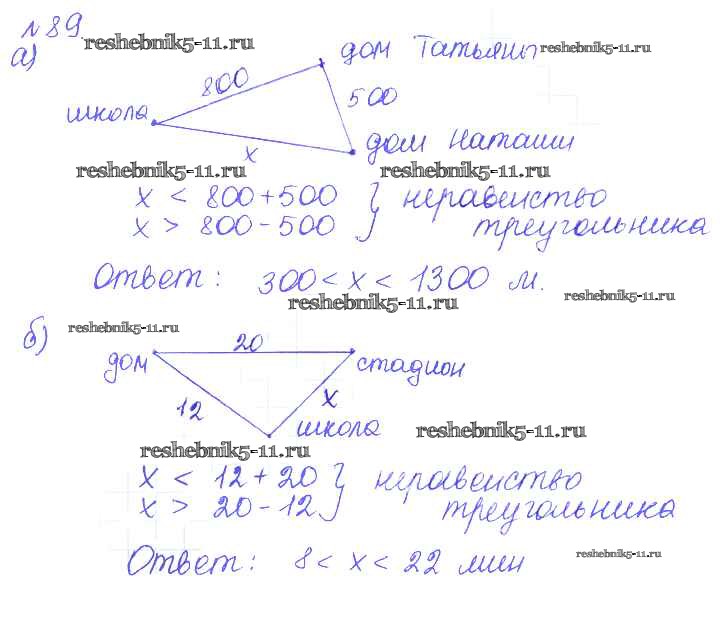 №89
reshebnik5-11.ru
а)
дом Татьяны
reshebnik5-11.ru
800
500
школа
x
дом Наташи
reshebnik5-11.ru
reshebnik5-11.ru
x < 800+500 } неравенство
x > 800-500 } треугольника
Ответ: 300 < x < 1300 м.
reshebnik5-11.ru
reshebnik5-11.ru
reshebnik5-11.ru
б)
20
дом
стадион
12
x
школа
reshebnik5-11.ru
reshebnik5-11.ru
x < 12+20 } неравенство
x > 20-12 } треугольника
Ответ: 8 < x < 22 мин
reshebnik5-11.ru